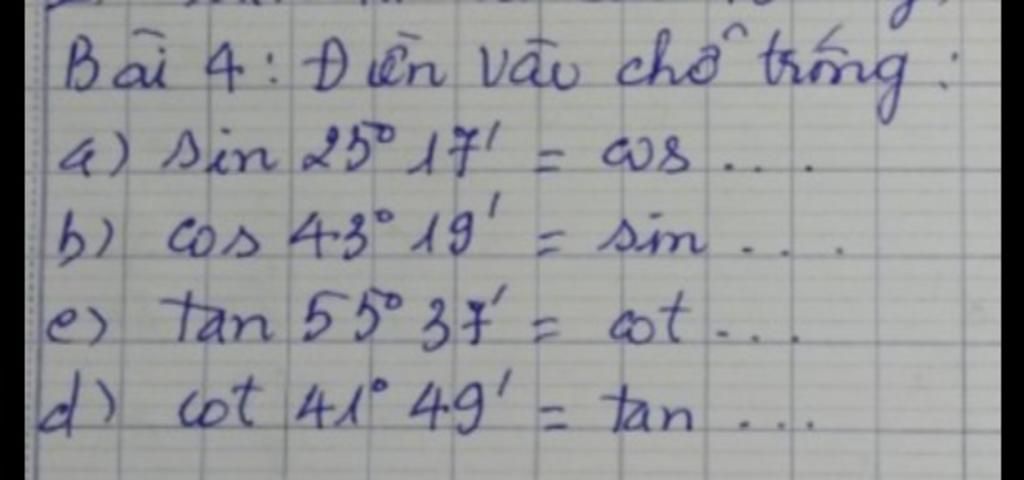 Bài 4: Điền vào chỗ trống:
a) sin 25° 17' = cos ....
b) cos 43° 19' = sin ....
c) tan 55° 37' = cot ....
d) cot 41° 49' = tan ....